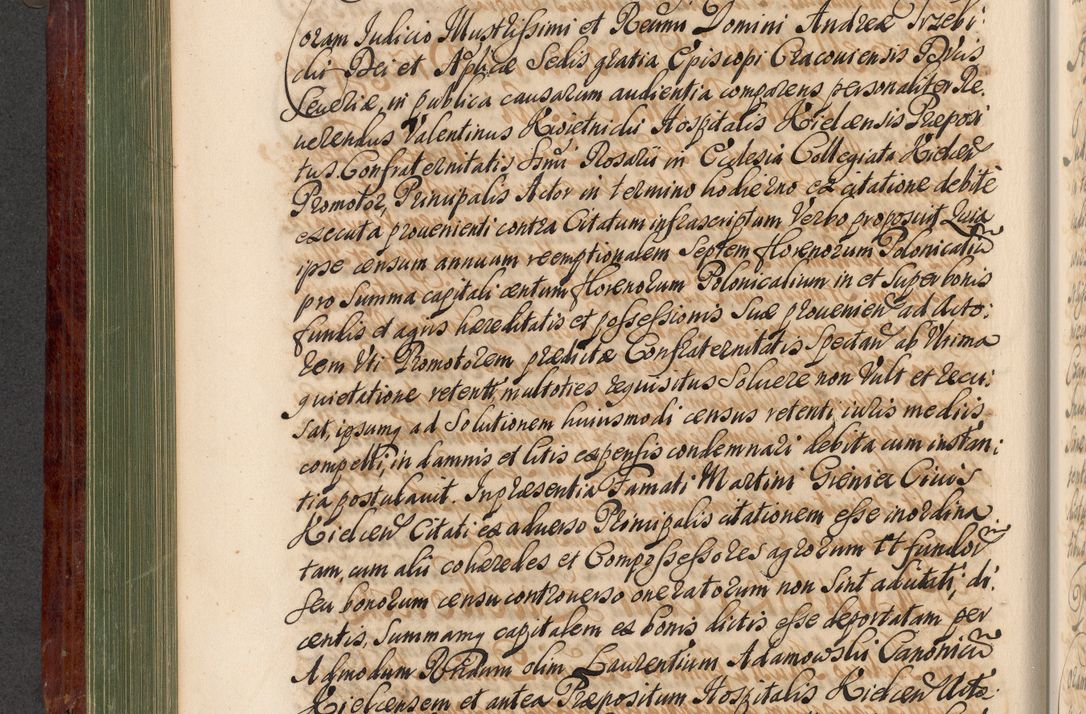 Coram Judicio Illustrissimi et Reverendissimi Domini Andreæ Trzebi:
cki Dei et Aplicæ Sedis gratia Episcopi Cracoviensis Ducis
Severiæ, in publica causarum audientia comparens personaliter Re.
verendus Valentinus Kwietnicki Hospitalis Kielcensis Præposi
tus Confraternitatis Ssmi Rosarii in Ecclesia Collegiata Kielcen
Promotor, Principalis Actor in termino hodierno ex citatione debitè
executa provenienti contra Citatum infrascriptum Verbo proposuit Quia
ipse censum annuum reemptionalem Septem florenorum Polonicaliu
pro Summa capitali centum florenorum Polonicalium in et Super bonis
fundis et agris hæreditatis et possessionis Suæ provenien ad Acto:
rem Uti Promotorem prædictæ Confraternitatis Spectan ab Ultima
quietatione retenti, multoties requisitus Solvere non Vult et recu:
sat, ipsumq ad Solutionem huiusmodi census retenti, iuris mediis
compelli, in damnis et litis expensis condemnari debita cum instan:
tia postulavit. In præsentia Famati Martini Grenica Civis
Kielcen Citati ex adverso Principalis citationem esse inordina
tam, cum alii cohæredes et Compossessores agrorum et fundor
seu bonorum censu controverso oneratorum non Sint adcitati, di:
centis, Summamq capitalem ex bonis dictis esse deportatam per
Admodum Rndum olim Laurentium Adamowski Canonicu
Kielcensem et antea Præpositum Hospitalis Kielcen Acta: